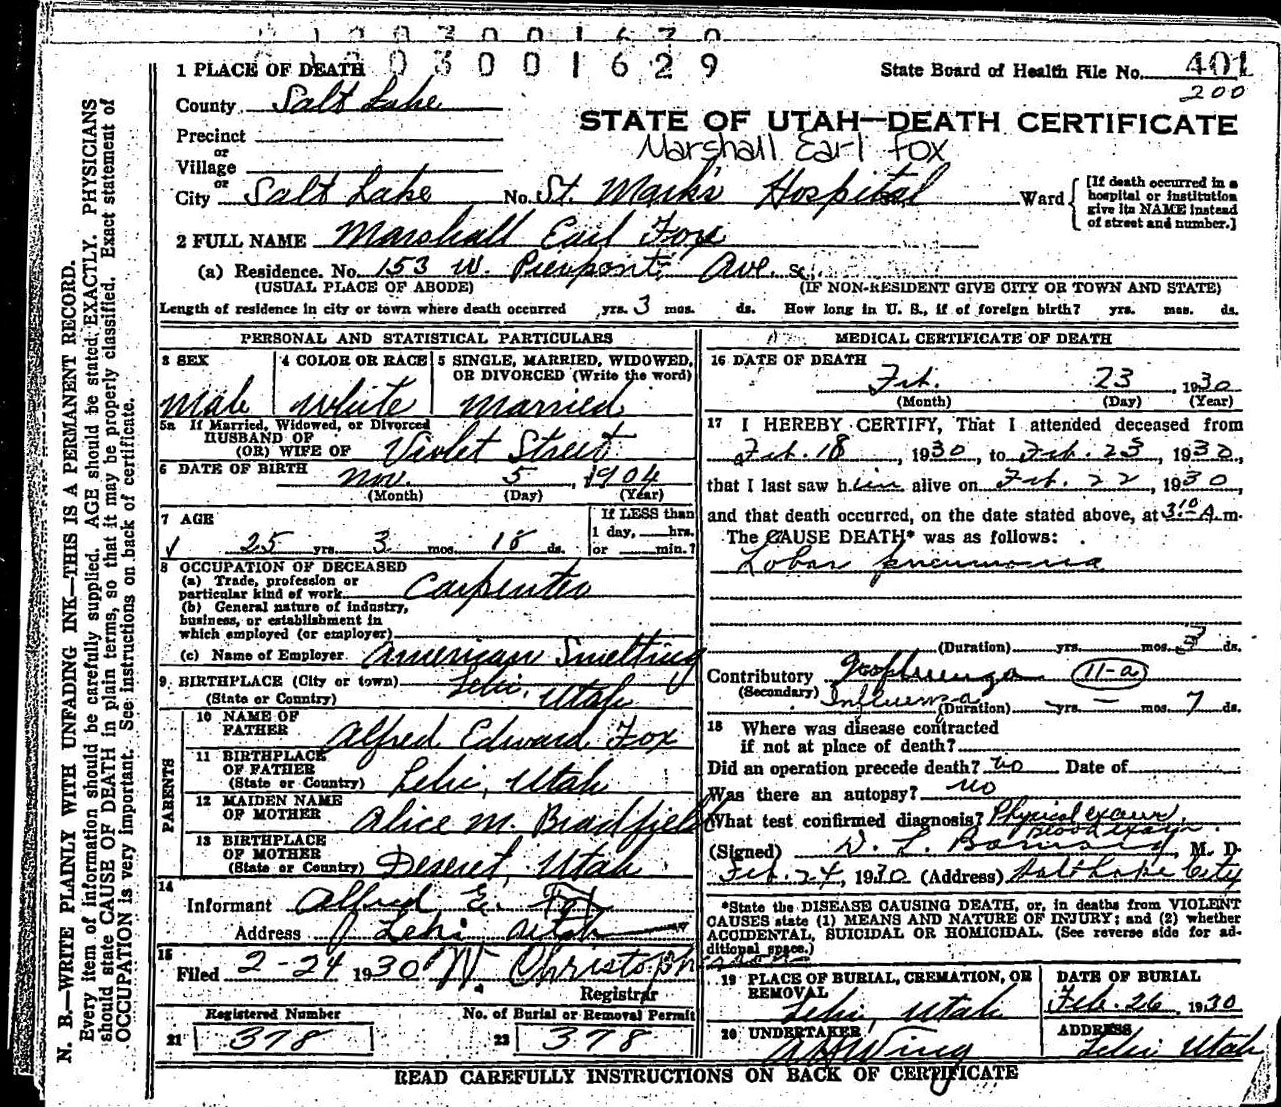 03001629
1 PLACE OF DEATH
State Board of Health File No. 401
200
County Salt Lake
STATE OF UTAH—DEATH CERTIFICATE
Precinct
Marshall Earl Fox
or
Village
or
City Salt Lake No. St. Mark's Hospital Ward
[If death occurred in a
hospital or institution
give its NAME instead
of street and number.]
2 FULL NAME Marshall Earl Fox
(a) Residence. No. 153 W. Pierpont Ave. St.
(USUAL PLACE OF ABODE) (IF NON-RESIDENT GIVE CITY OR TOWN AND STATE)
Length of residence in city or town where death occurred yrs. 3 mos. ds. How long in U. S., if of foreign birth? yrs. mos. ds.
PERSONAL AND STATISTICAL PARTICULARS
3 SEX
Male
4 COLOR OR RACE
White
5 SINGLE, MARRIED, WIDOWED,
OR DIVORCED (Write the word)
Married
5a If Married, Widowed, or Divorced
HUSBAND OF
(OR) WIFE OF Violet Street
6 DATE OF BIRTH
Nov. 5, 1904
(Month) (Day) (Year)
7 AGE
25 yrs. 3 mos. 18 ds.
If LESS than
1 day, hrs.
or min.?
8 OCCUPATION OF DECEASED
(a) Trade, profession or
particular kind of work Carpenter
(b) General nature of industry,
business, or establishment in
which employed (or employer)
(c) Name of Employer American Smelting
9 BIRTHPLACE (City or town) Lehi, Utah
(State or Country)
PARENTS
10 NAME OF
FATHER Alfred Edward Fox
11 BIRTHPLACE
OF FATHER
(State or Country) Lehi, Utah
12 MAIDEN NAME
OF MOTHER Alice M. Bradfield
13 BIRTHPLACE
OF MOTHER
(State or Country) Deseret, Utah
14
Informant Alfred E. Fox
Address Lehi Utah
15
Filed 2-24 1930 W. Christoph
Registrar
Registered Number
21 378
No. of Burial or Removal Permit
22 378
MEDICAL CERTIFICATE OF DEATH
16 DATE OF DEATH
Feb. 23, 1930
(Month) (Day) (Year)
17 I HEREBY CERTIFY, That I attended deceased from
Feb. 18, 1930, to Feb. 23, 1930,
that I last saw him alive on Feb. 22, 1930,
and that death occurred, on the date stated above, at 3:10 A.m.
The CAUSE DEATH* was as follows:
Lobar pneumonia
(Duration) yrs. mos. 3 ds.
Contributory 11-a
(Secondary) Influenza
(Duration) – yrs. – mos. 7 ds.
18 Where was disease contracted
if not at place of death?
Did an operation precede death? no Date of
Was there an autopsy? no
What test confirmed diagnosis? Physical exam
Blood exam
(Signed) D. L. M. D.
Feb. 24, 1930 (Address) Salt Lake City
*State the DISEASE CAUSING DEATH, or, in deaths from VIOLENT
CAUSES state (1) MEANS AND NATURE OF INJURY; and (2) whether
ACCIDENTAL, SUICIDAL OR HOMICIDAL. (See reverse side for ad-
ditional space.)
19 PLACE OF BURIAL, CREMATION, OR
REMOVAL
Lehi, Utah
DATE OF BURIAL
Feb. 26, 1930
20 UNDERTAKER
A H Wing
ADDRESS
Lehi Utah
READ CAREFULLY INSTRUCTIONS ON BACK OF CERTIFICATE
N. B.—WRITE PLAINLY WITH UNFADING INK—THIS IS A PERMANENT RECORD.
Every item of information should be carefully supplied. AGE should be stated EXACTLY. PHYSICIANS
should state CAUSE OF DEATH in plain terms, so that it may be properly classified. Exact statement of
OCCUPATION is very important. See instructions on back of certificate.